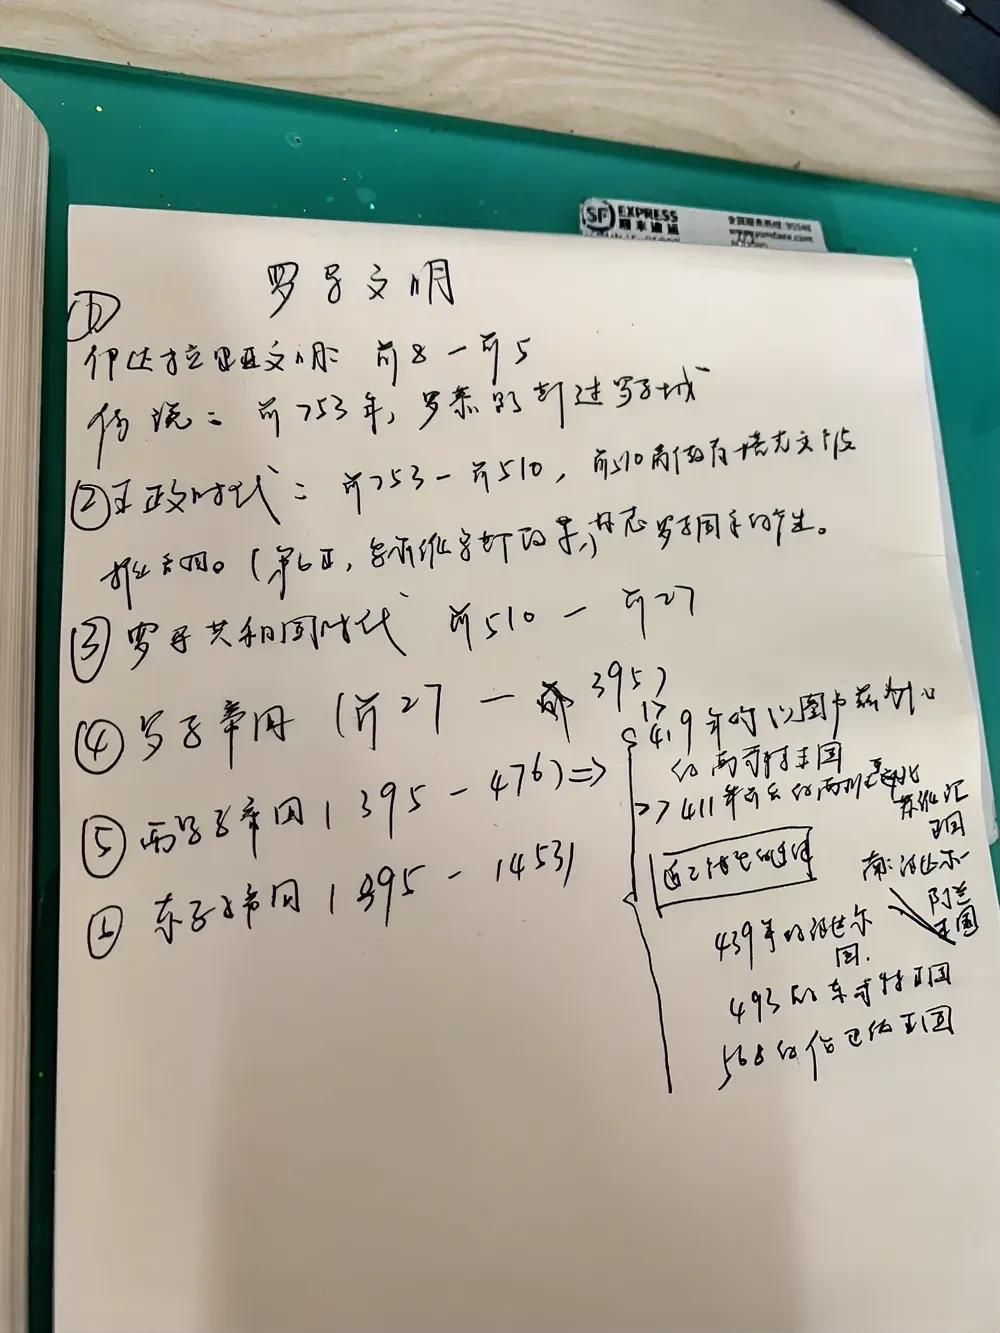 SF EXPRESS
罗马文明
①
伊达拉里亚文明: 前8一前5
传说: 前753年, 罗慕路 建 罗马城
②王政时代: 前753-前510, 前510 高傲者塔克文 被
推翻。(第6王, 塞尔维 改革)标志罗马国家的产生。
③罗马共和国时代 前510 — 前27
④罗马帝国 (前27 — 395)
⑤西罗马帝国(395-476)=>
⑥东罗马帝国(395-1453)
1> 419年的以图卢兹为中心
的西哥特王国
2> 411年 的 北
苏维汇
王国
南: 汪达尔一
阿兰
王国
439年的汪达尔
国.
493的东哥特王国
568的伦巴德王国